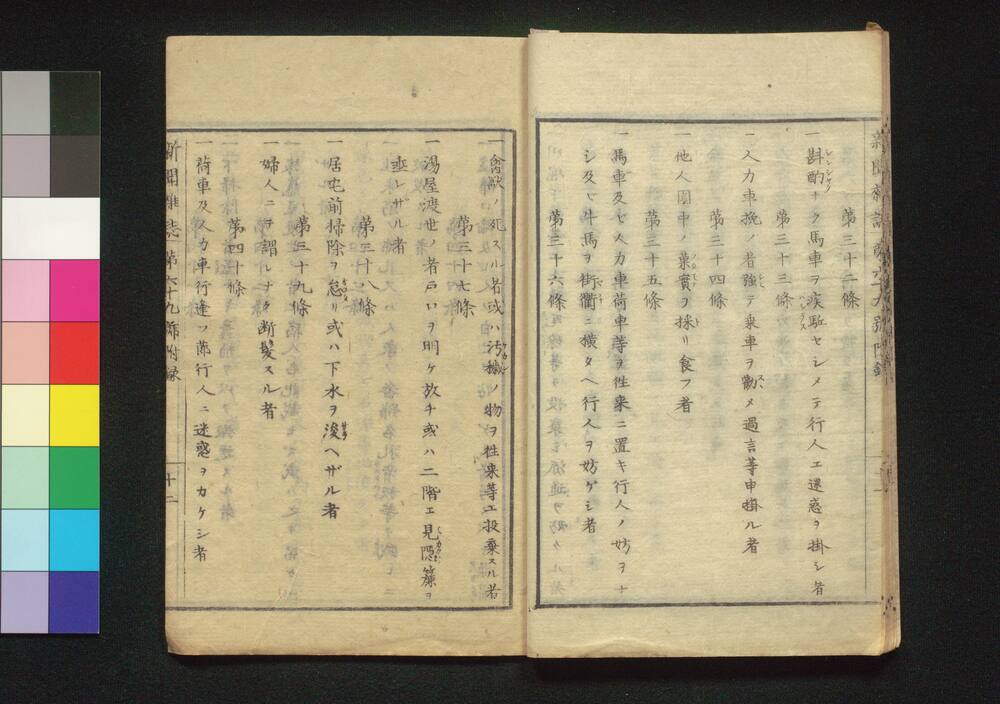 第三十二條
一斟酌ナク馬車ヲ疾駈セシメテ行人エ迷惑ヲ掛シ者
第三十三條
一人力車挽ノ者強テ乗車ヲ勸メ過言等申掛ル者
第三十四條
一他人園中ノ菓實ヲ採リ食フ者
第三十五條
一馬車及ヒ人力車荷車等ヲ往来ニ置キ行人ノ妨ヲナ
シ及ヒ牛馬ヲ街衢ニ横タヘ行人ヲ妨ゲシ者
第三十六條
一禽獣ノ死スル者或ハ汚穢ノ物ヲ往来等エ投棄スル者
第三十七條
一湯屋渡世ノ者戸口ヲ明ケ放チ或ハ二階エ見隠簾ヲ
垂レザル者
第三十八條
一居宅前掃除ヲ怠リ或ハ下水ヲ浚ヘザル者
第三十九條
一婦人ニテ謂レナク断髪スル者
第四十條
一荷車及人力車行逢フ節行人ニ迷惑ヲカケシ者
新聞雑誌 第六十九號附録 十二